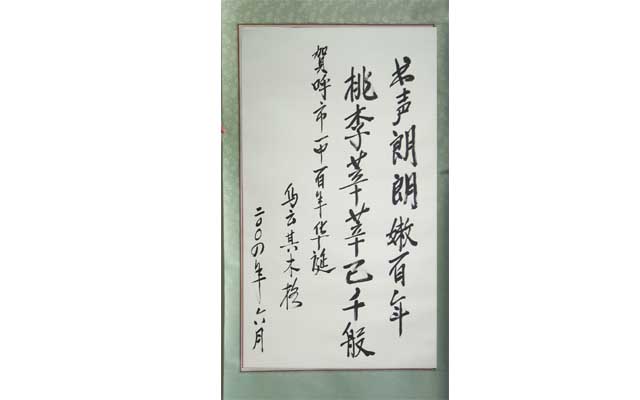 书声朗朗嫩百年
桃李莘莘已千般
賀呼市一中百年华誕
乌云其木格
二〇〇四年六月